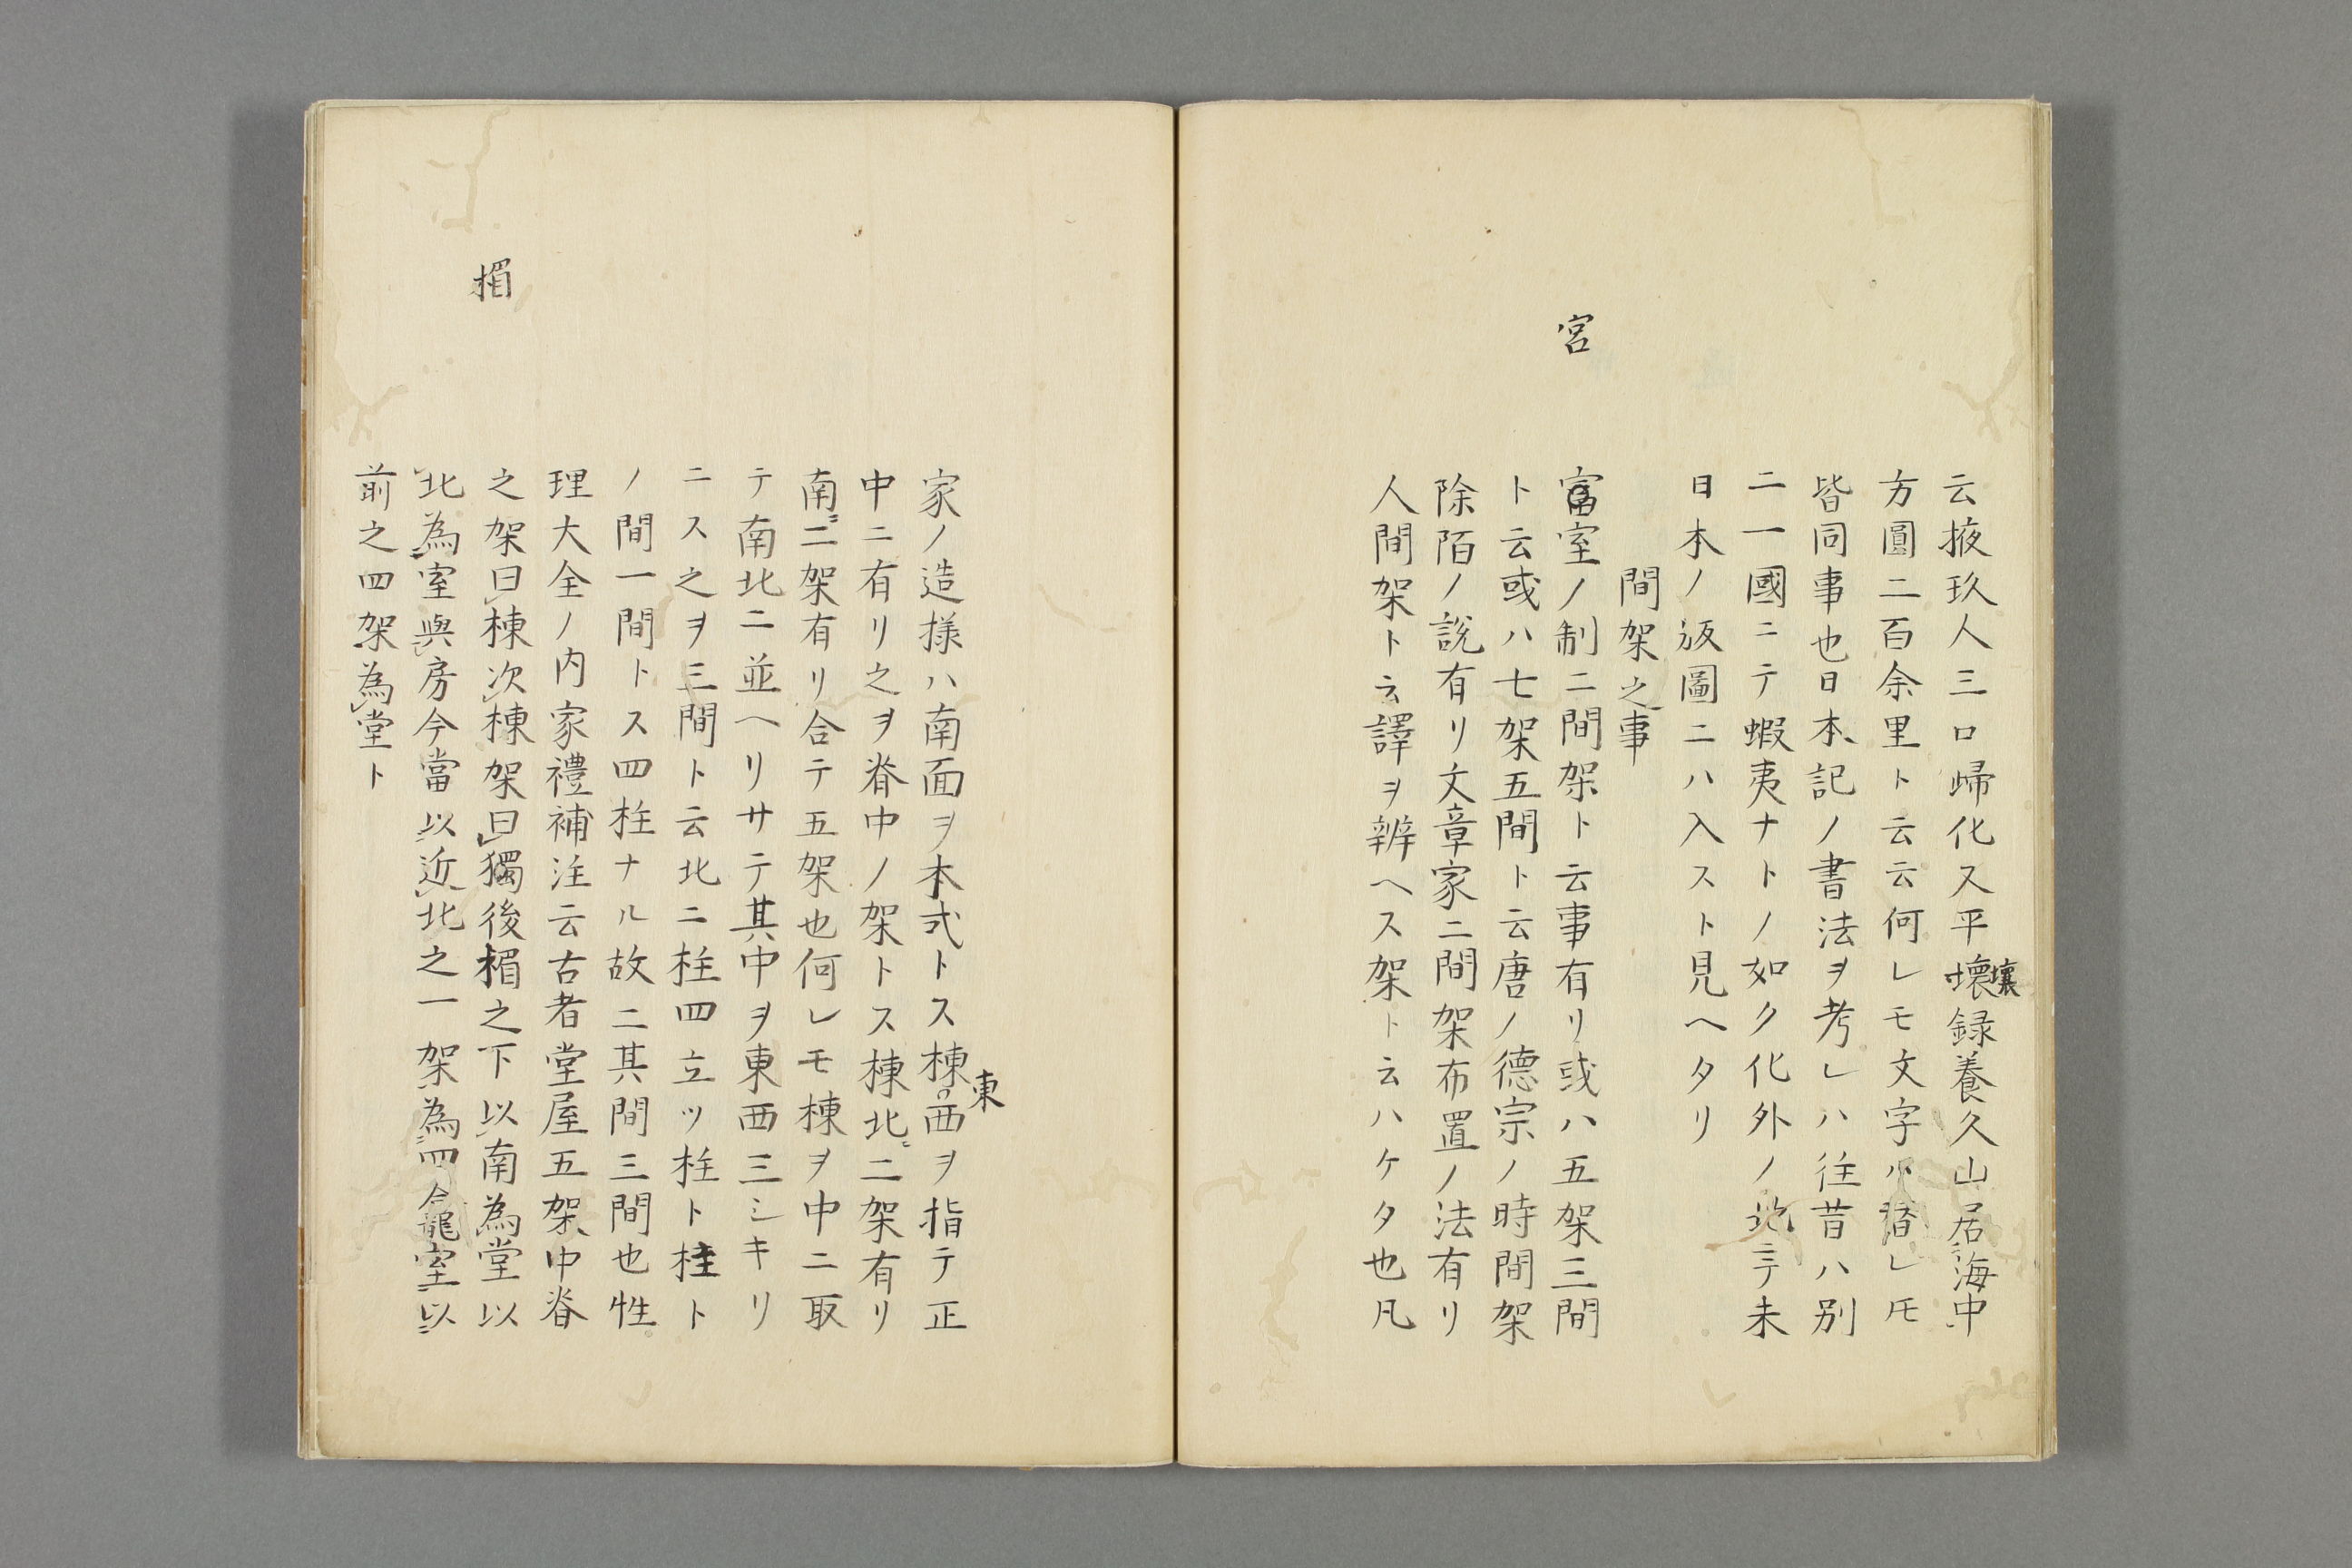 云掖玖人三口帰化又平壞録養久山居海中
壤
方圓二百余里ト云云何レモ文字ハ替レモ
皆同事也日本記ノ書法ヲ考レハ往昔ハ別
ニ一國ニテ蝦夷ナトノ如ク化外ノ地ニテ未
日本ノ版圖ニハ入スト見ヘタリ
間架之事
宮
室ノ制ニ間架ト云事有リ或ハ五架三間
ト云或ハ七架五間ト云唐ノ德宗ノ時間架
除陌ノ說有リ文章家ニ間架布置ノ法有リ
人間架ト云譯ヲ辨ヘス架ト云ハケタ也凡
家ノ造様ハ南面ヲ本式トス棟西ヲ指テ正
東
中ニ有リ之ヲ脊中ノ架トス棟北ニ二架有リ
南ニ二架有リ合テ五架也何レモ棟ヲ中ニ取
テ南北ニ並ヘリサテ其中ヲ東西三シキリ
ニス之ヲ三間ト云北ニ柱四立ツ柱ト柱ト
ノ間一間トス四柱ナル故ニ其間三間也性
理大全ノ内家禮補注云古者堂屋五架中脊
楣
之架曰棟次棟架曰獨後楣之下以南為堂以
北為室與房今當以近北之一架為四龕室以
前之四架為堂ト